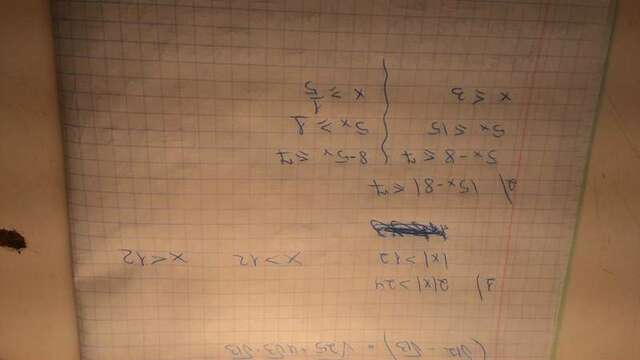 (√12 - √13) = √25 + 4√3 · √13
1) 2|x| > 24
|x| > 12 x > 12 x < 12
2) |5x - 8| ≤ 7
5x - 8 ≤ 7 8 - 5x ≤ 7
5x ≤ 15 5x ≥ 1
x ≤ 3 x ≥ 1/5